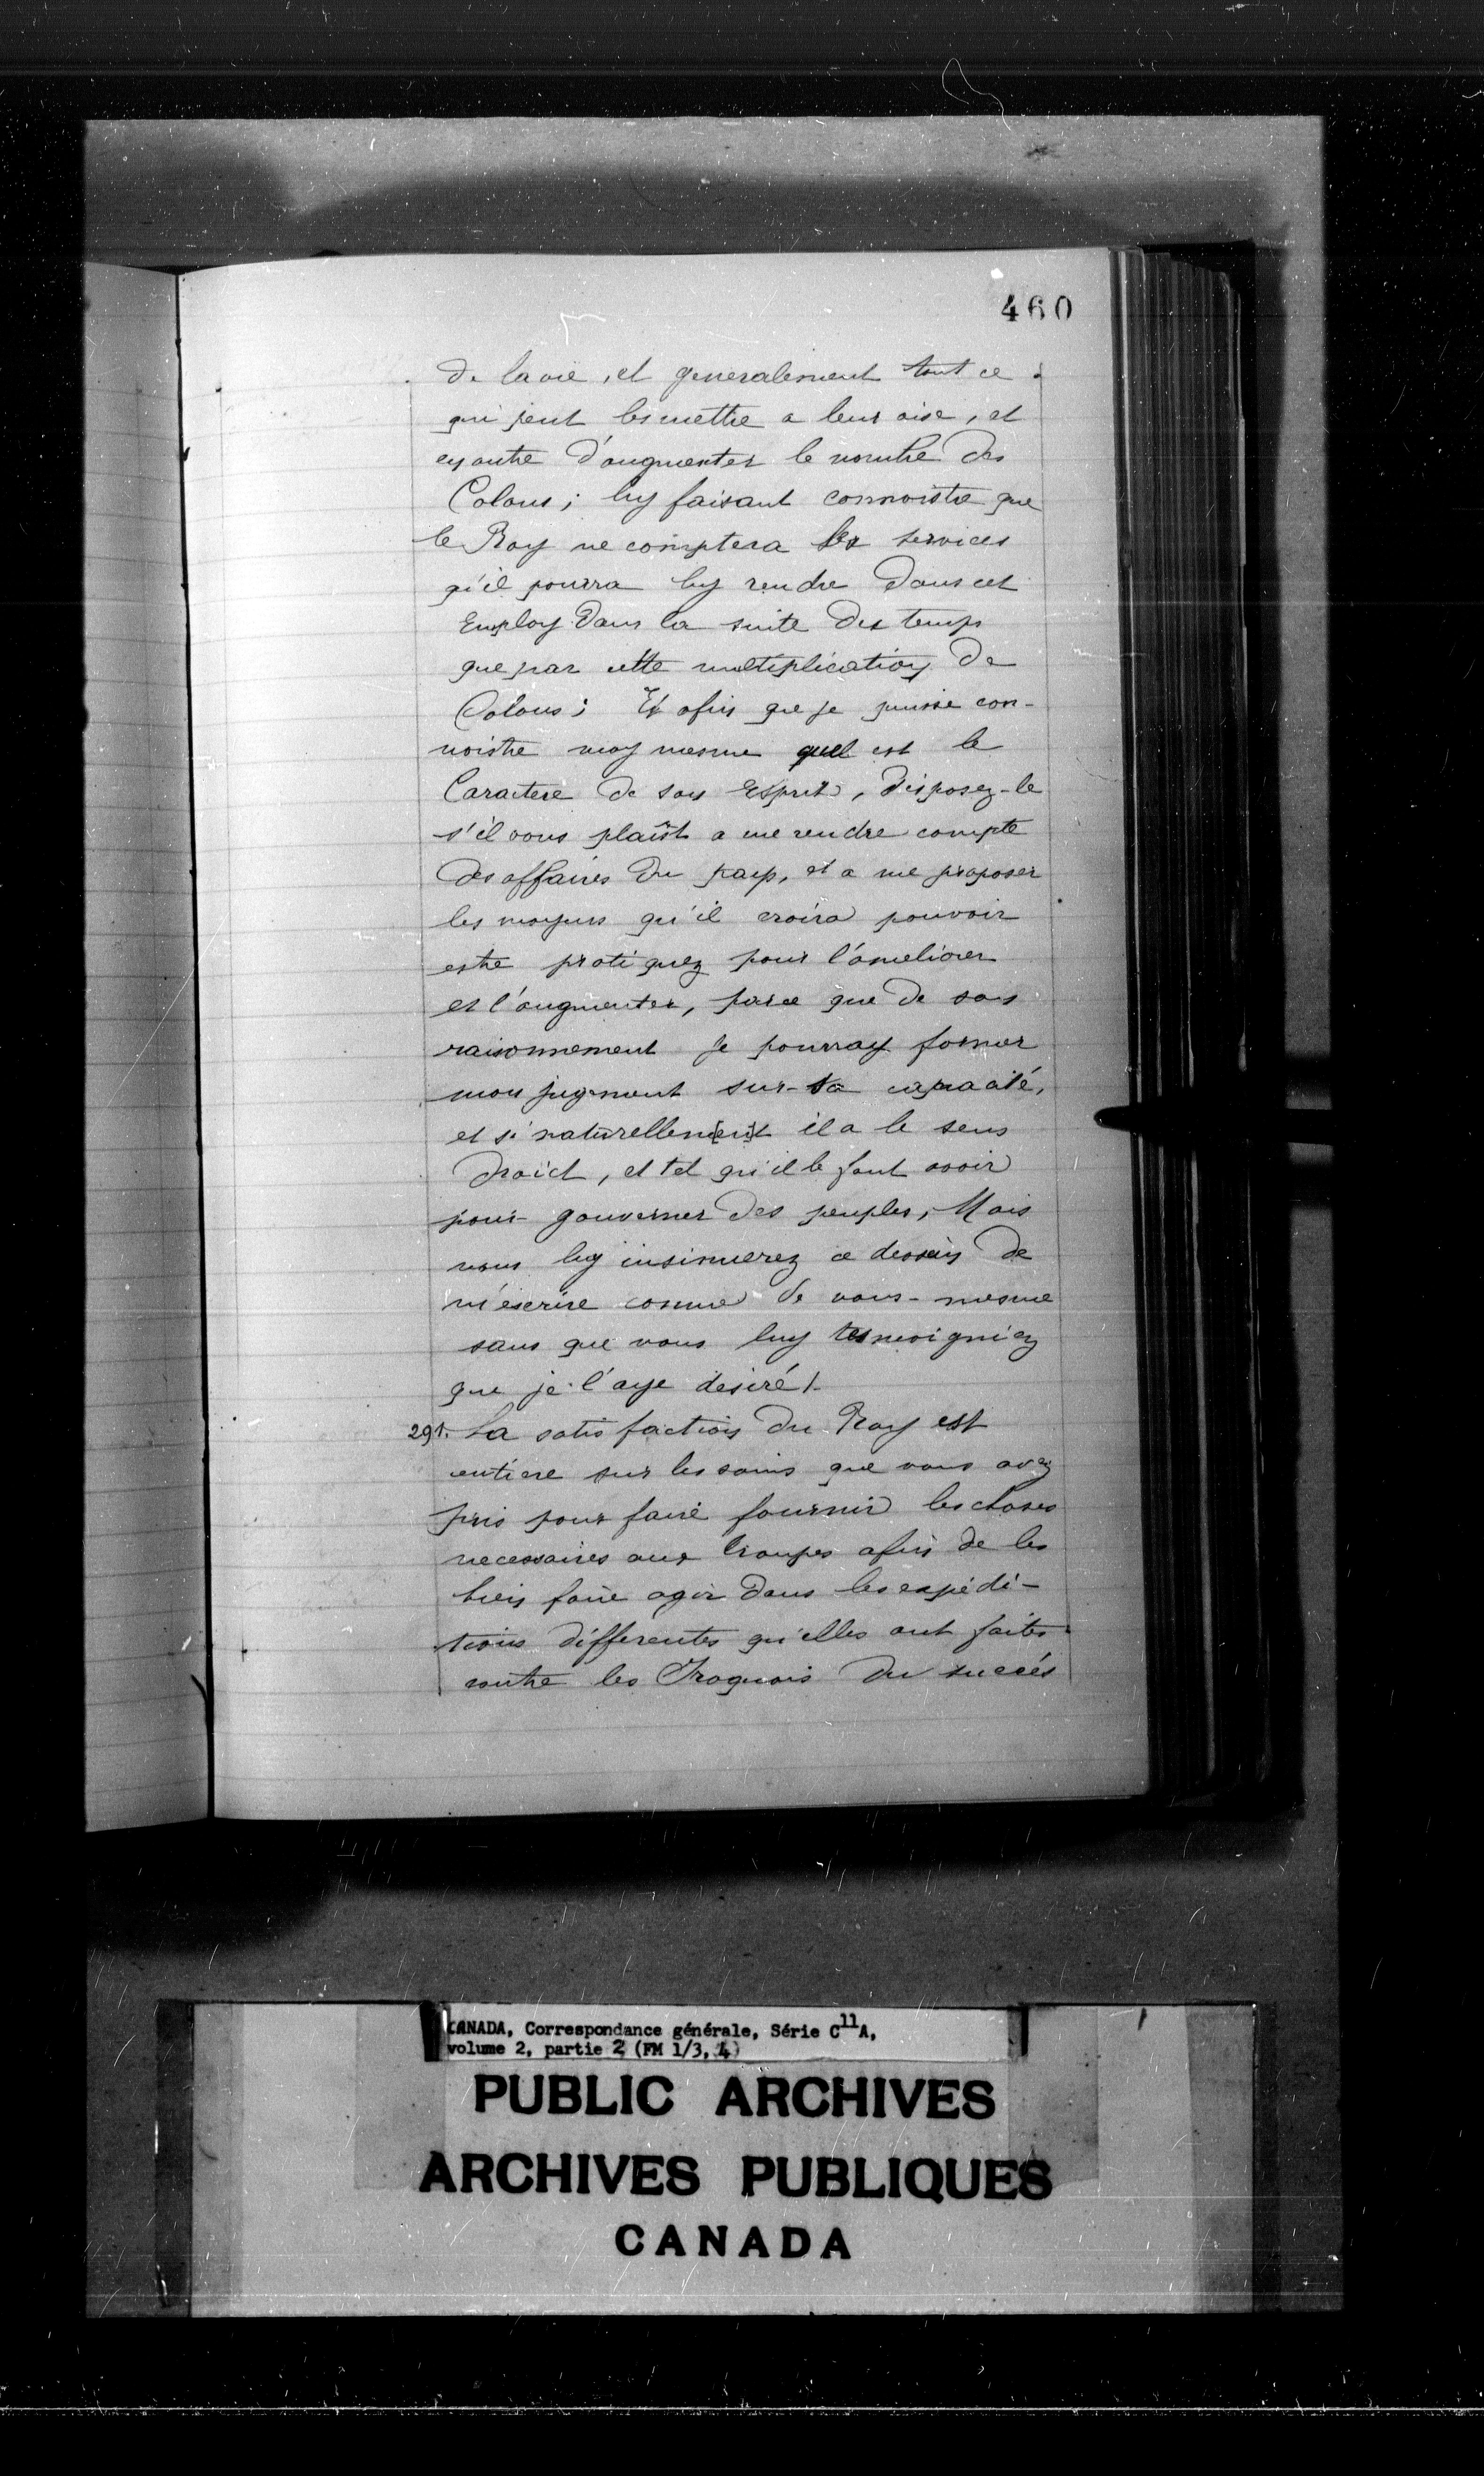 460
de la vie, et generalement tout ce
qui peut les mettre a leur aise, et
en outre d'augmenter le nombre des
Colons; luy faisant connoistre que
le Roy ne comptera les services
qu'il pourra luy rendre dans cet
Employ dans la suite des temps
que par cette multiplication de
Colons; Et afin que je puisse con-
noistre moy mesme quel est le
Caractere de son Esprit, disposez-le
s'il vous plaîst a me rendre compte
des affaires du pays, et a me proposer
les moyens qu'il croira pouvoir
estre pratiquez pour l'ameliorer
et l'augmenter, parce que de son
raisonnement je pourray former
mon jugement sur sa capacité,
et si naturellem[en]t il a le sens
droict, et tel qu'il le faut avoir
pour gouverner des peuples, Mais
vous luy insinuerez ce dessein de
m'escrire comme de vous-mesme
sans que vous luy tesmoigniez
que je l'aye desiré/.
291. La satisfaction du Roy est
entiere sur les soins que vous avez
pris pour faire fournir les choses
necessaires aux troupes afin de les
bien faire agir dans les expédi-
tions differentes qu'elles ont faites
contre les Iroquois du succés
CANADA, Correspondance générale, Série C11A,
volume 2, partie 2 (FM 1/3, 4)
PUBLIC ARCHIVES
ARCHIVES PUBLIQUES
CANADA